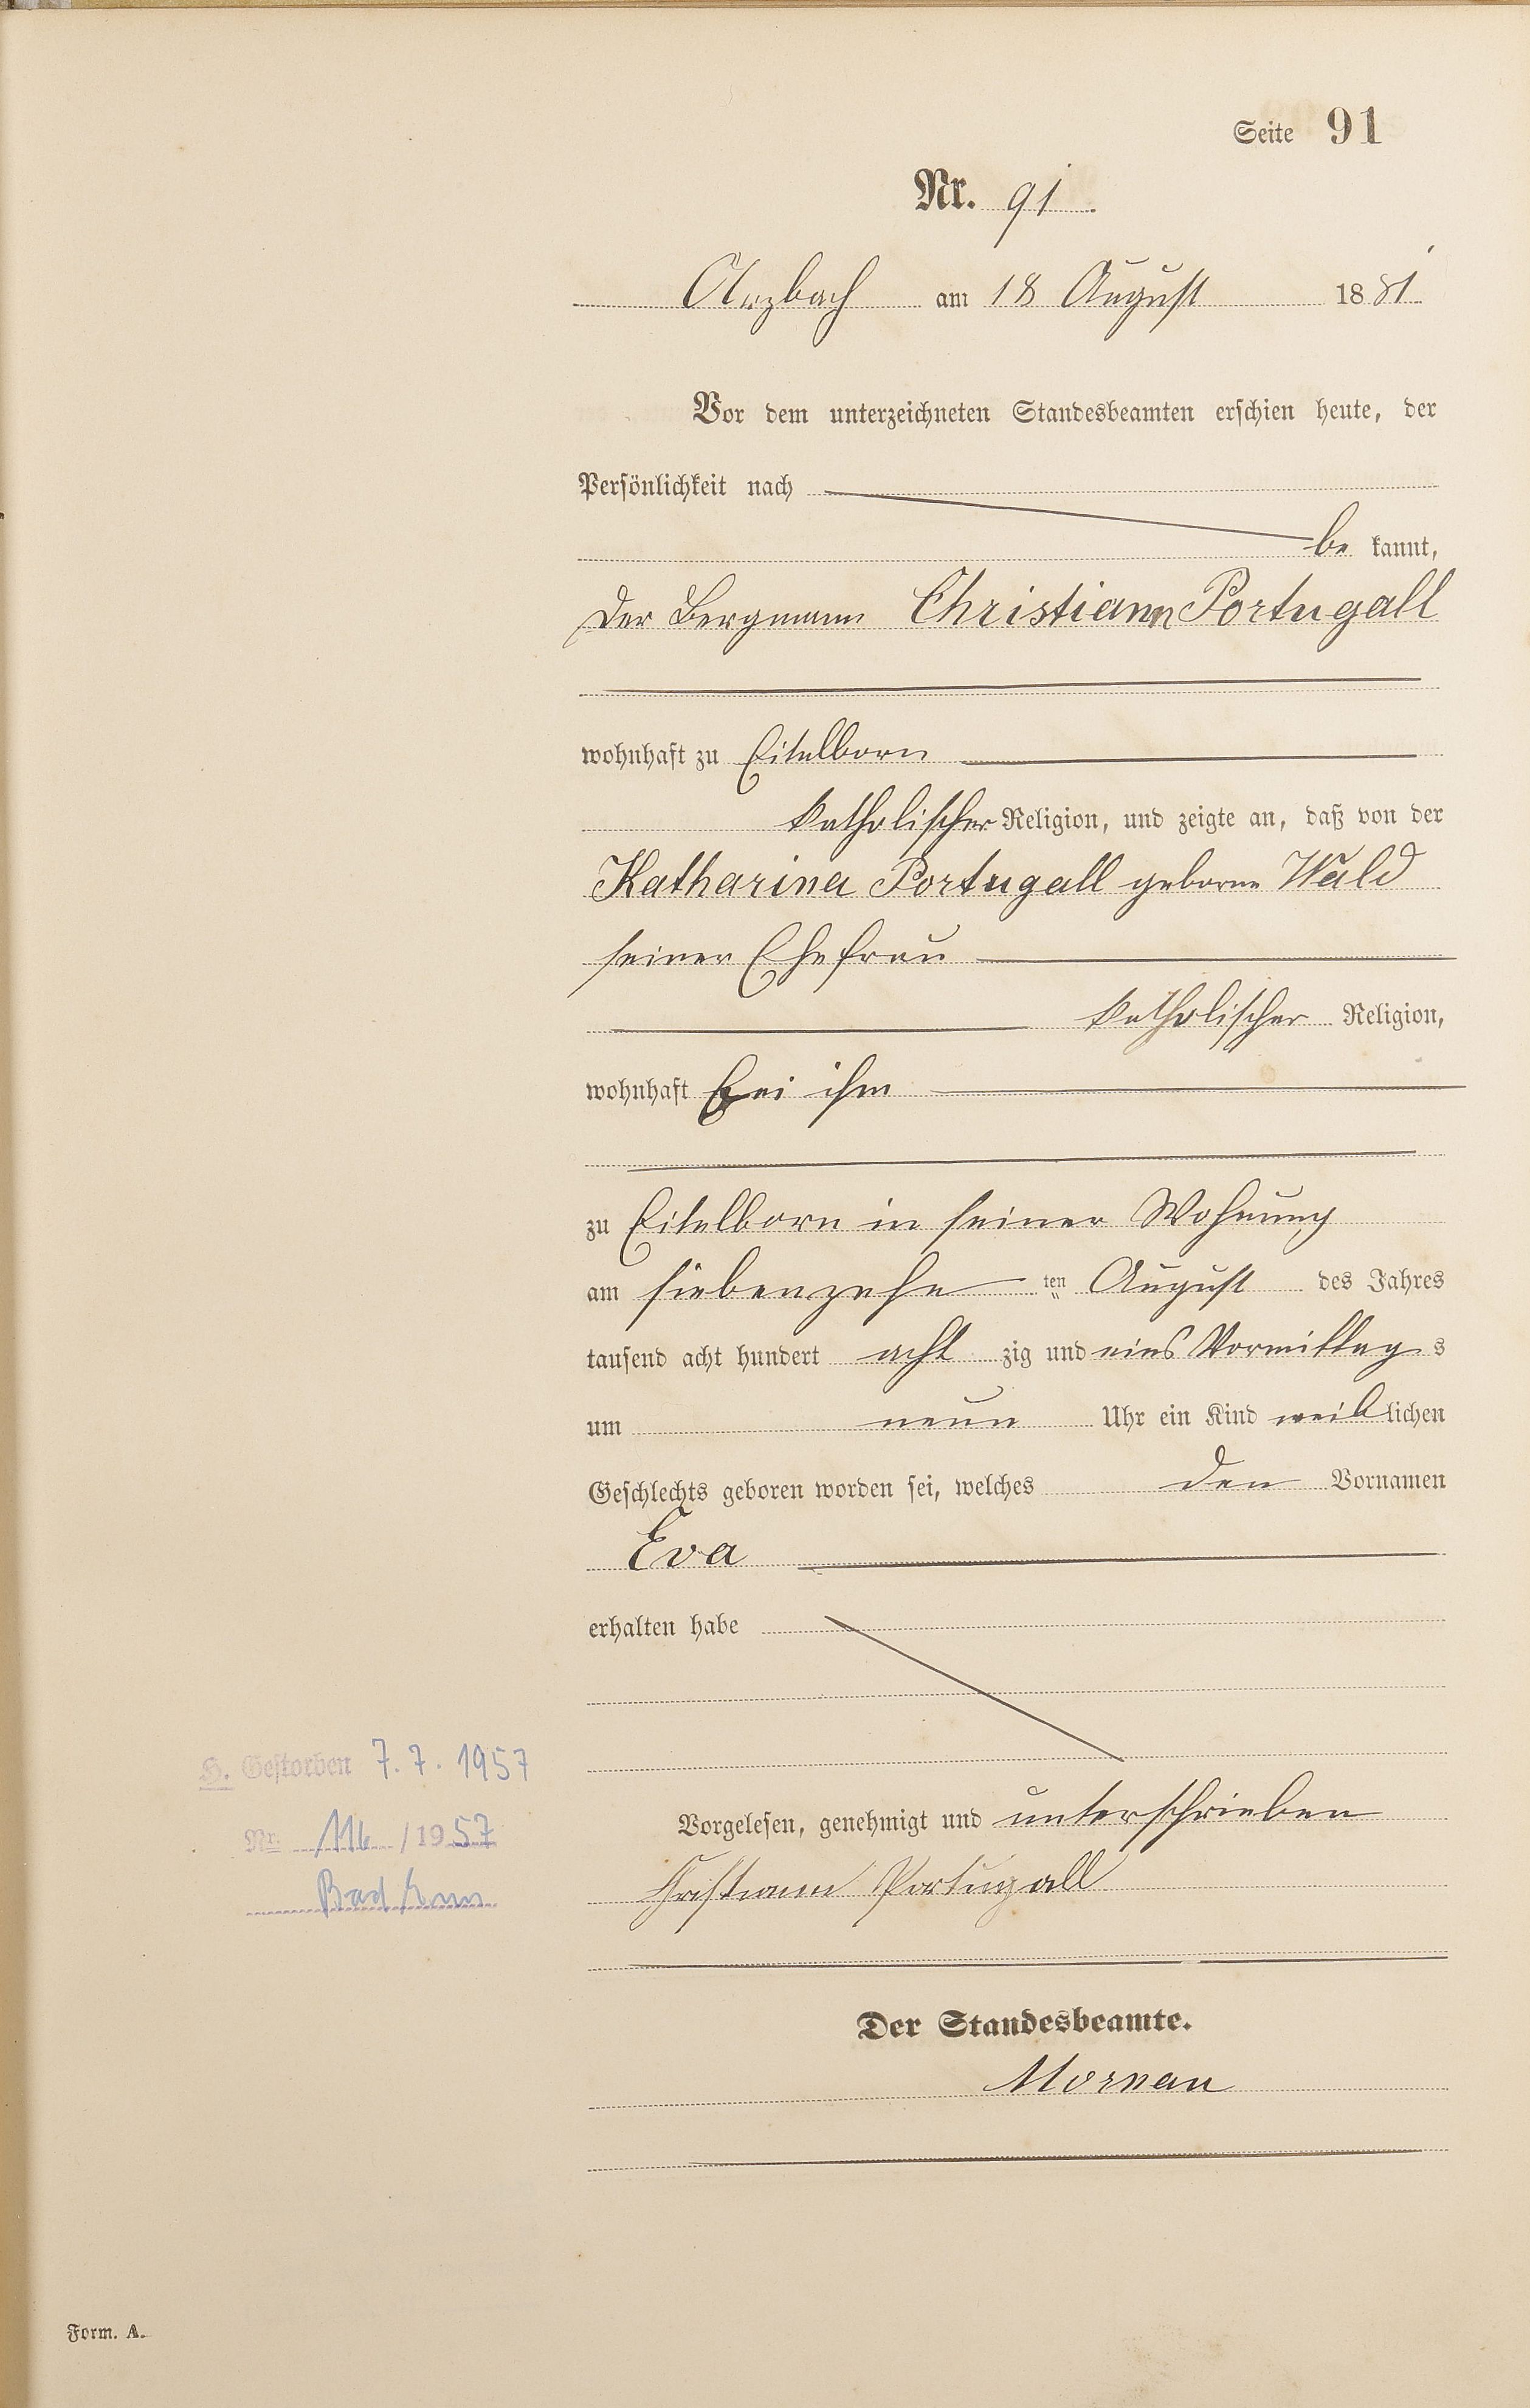 Seite 91
Nr. 91.
Arzbach am 18 August 1881
Vor dem unterzeichneten Standesbeamten erschien heute, der
Persönlichkeit nach
be kannt,
der Bergmann Christiann Portugall
wohnhaft zu Eitelborn
katholischer Religion, und zeigte an, daß von der
Katharina Portugall geborne Wald
seiner Ehefrau
katholischer Religion,
wohnhaft bei ihm
zu Eitelborn in seiner Wohnung
am siebenzehn ten August des Jahres
tausend acht hundert acht zig und eins Vormittag s
um neun Uhr ein Kind weiblichen
Geschlechts geboren worden sei, welches den Vornamen
Eva
erhalten habe
H. Gestorben 7.7.1957
Nr. 116/1957
Bad Ems
Vorgelesen, genehmigt und unterschrieben
Christiann Portugall
Der Standesbeamte.
Form. A.